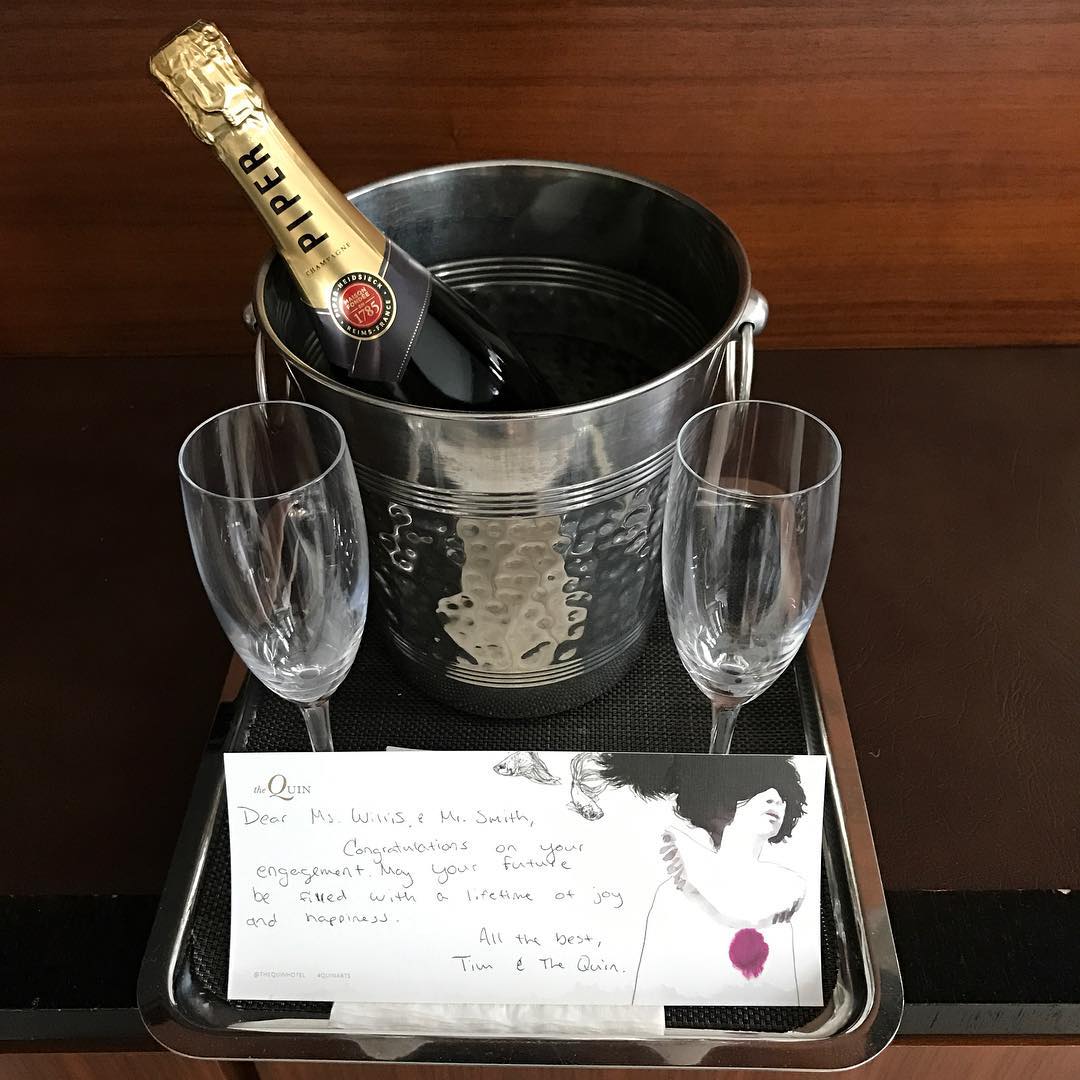 PIPER
CHAMPAGNE
PIPER-HEIDSIECK
MAISON
FONDÉE
EN
1785
REIMS-FRANCE
the QUIN
Dear Ms. Willis & Mr. Smith,
Congratulations on your
engagement. May your future
be filled with a lifetime of joy
and happiness.
All the best,
Tim & The Quin.
@THEQUINHOTEL #QUINARTS